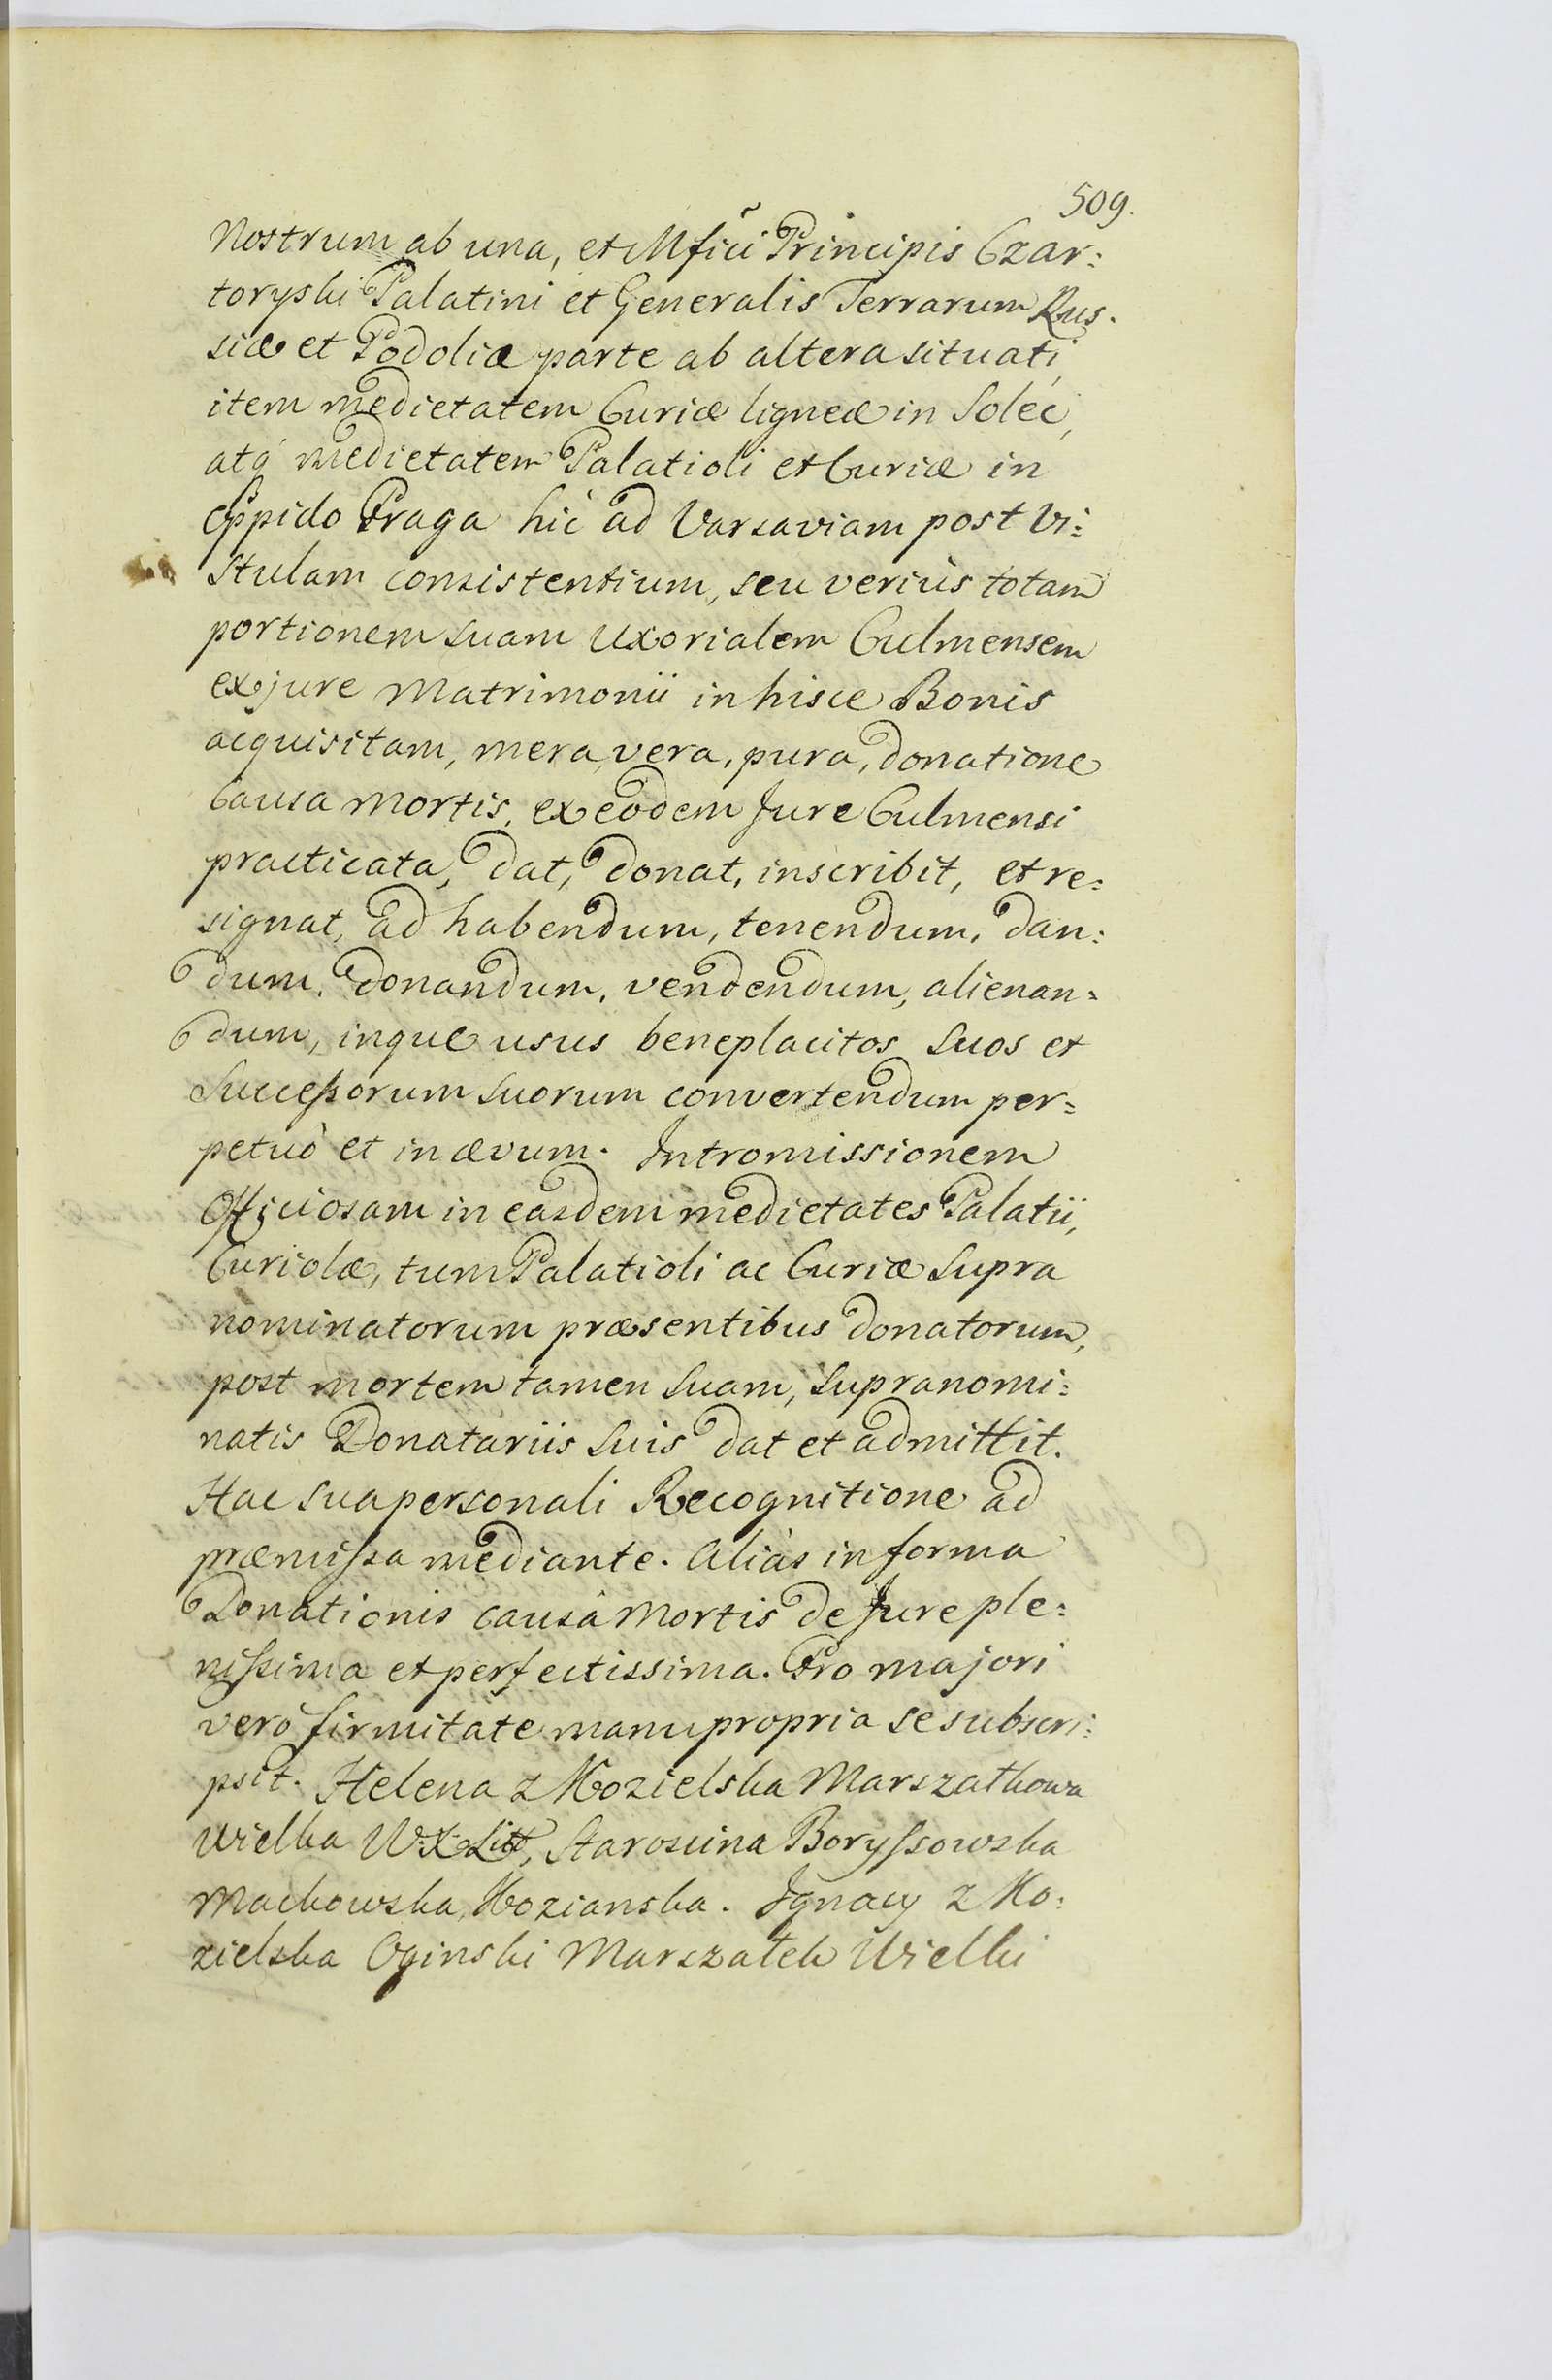 509.
Nostrum ab una, et Mfici Principis Czar:
toryski Palatini et Generalis Terrarum Rus:
siæ et Podoliæ parte ab altera situati,
item medietatem Curiæ ligneæ in Solec,
atq́ medietatem Palatioli et Curiæ in
Oppido Praga hic ad Varsaviam post Vi:
stulam consistentium, seu verius totam
portionem suam Uxorialem Culmensem
ex jure Matrimonii in hisce Bonis
acquisitam, mera, vera, pura, donatione
Causa Mortis, ex eodem Jure Culmensi
practicata, dat, donat, inscribit, et re:
signat, ad habendum, tenendum, dan:
dum, donandum, vendendum, alienan:
dum, inque usus beneplacitos suos et
Successorum suorum convertendum per:
petuò et in ævum. Intromissionem
Officiosam in easdem medietates Palatii,
Curiolæ, tum Palatioli ac Curiæ supra
nominatorum præsentibus donatorum,
post mortem tamen suam, supranomi:
natis Donatariis suis dat et admittit.
Hac sua personali Recognitione ad
præmissa mediante. Aliàs in forma
Donationis causa Mortis de Jure ple:
nissima et perfectissima. Pro majori
verò firmitate manu propria se subscri:
psit. Helena z Kozielska Marszałkowa
Wielka W. X. Litt, Staroscina Boryssowska
Mackowska, Kozianska. Jgnacy z Ko:
zielska Oginski Marszałek Wielki